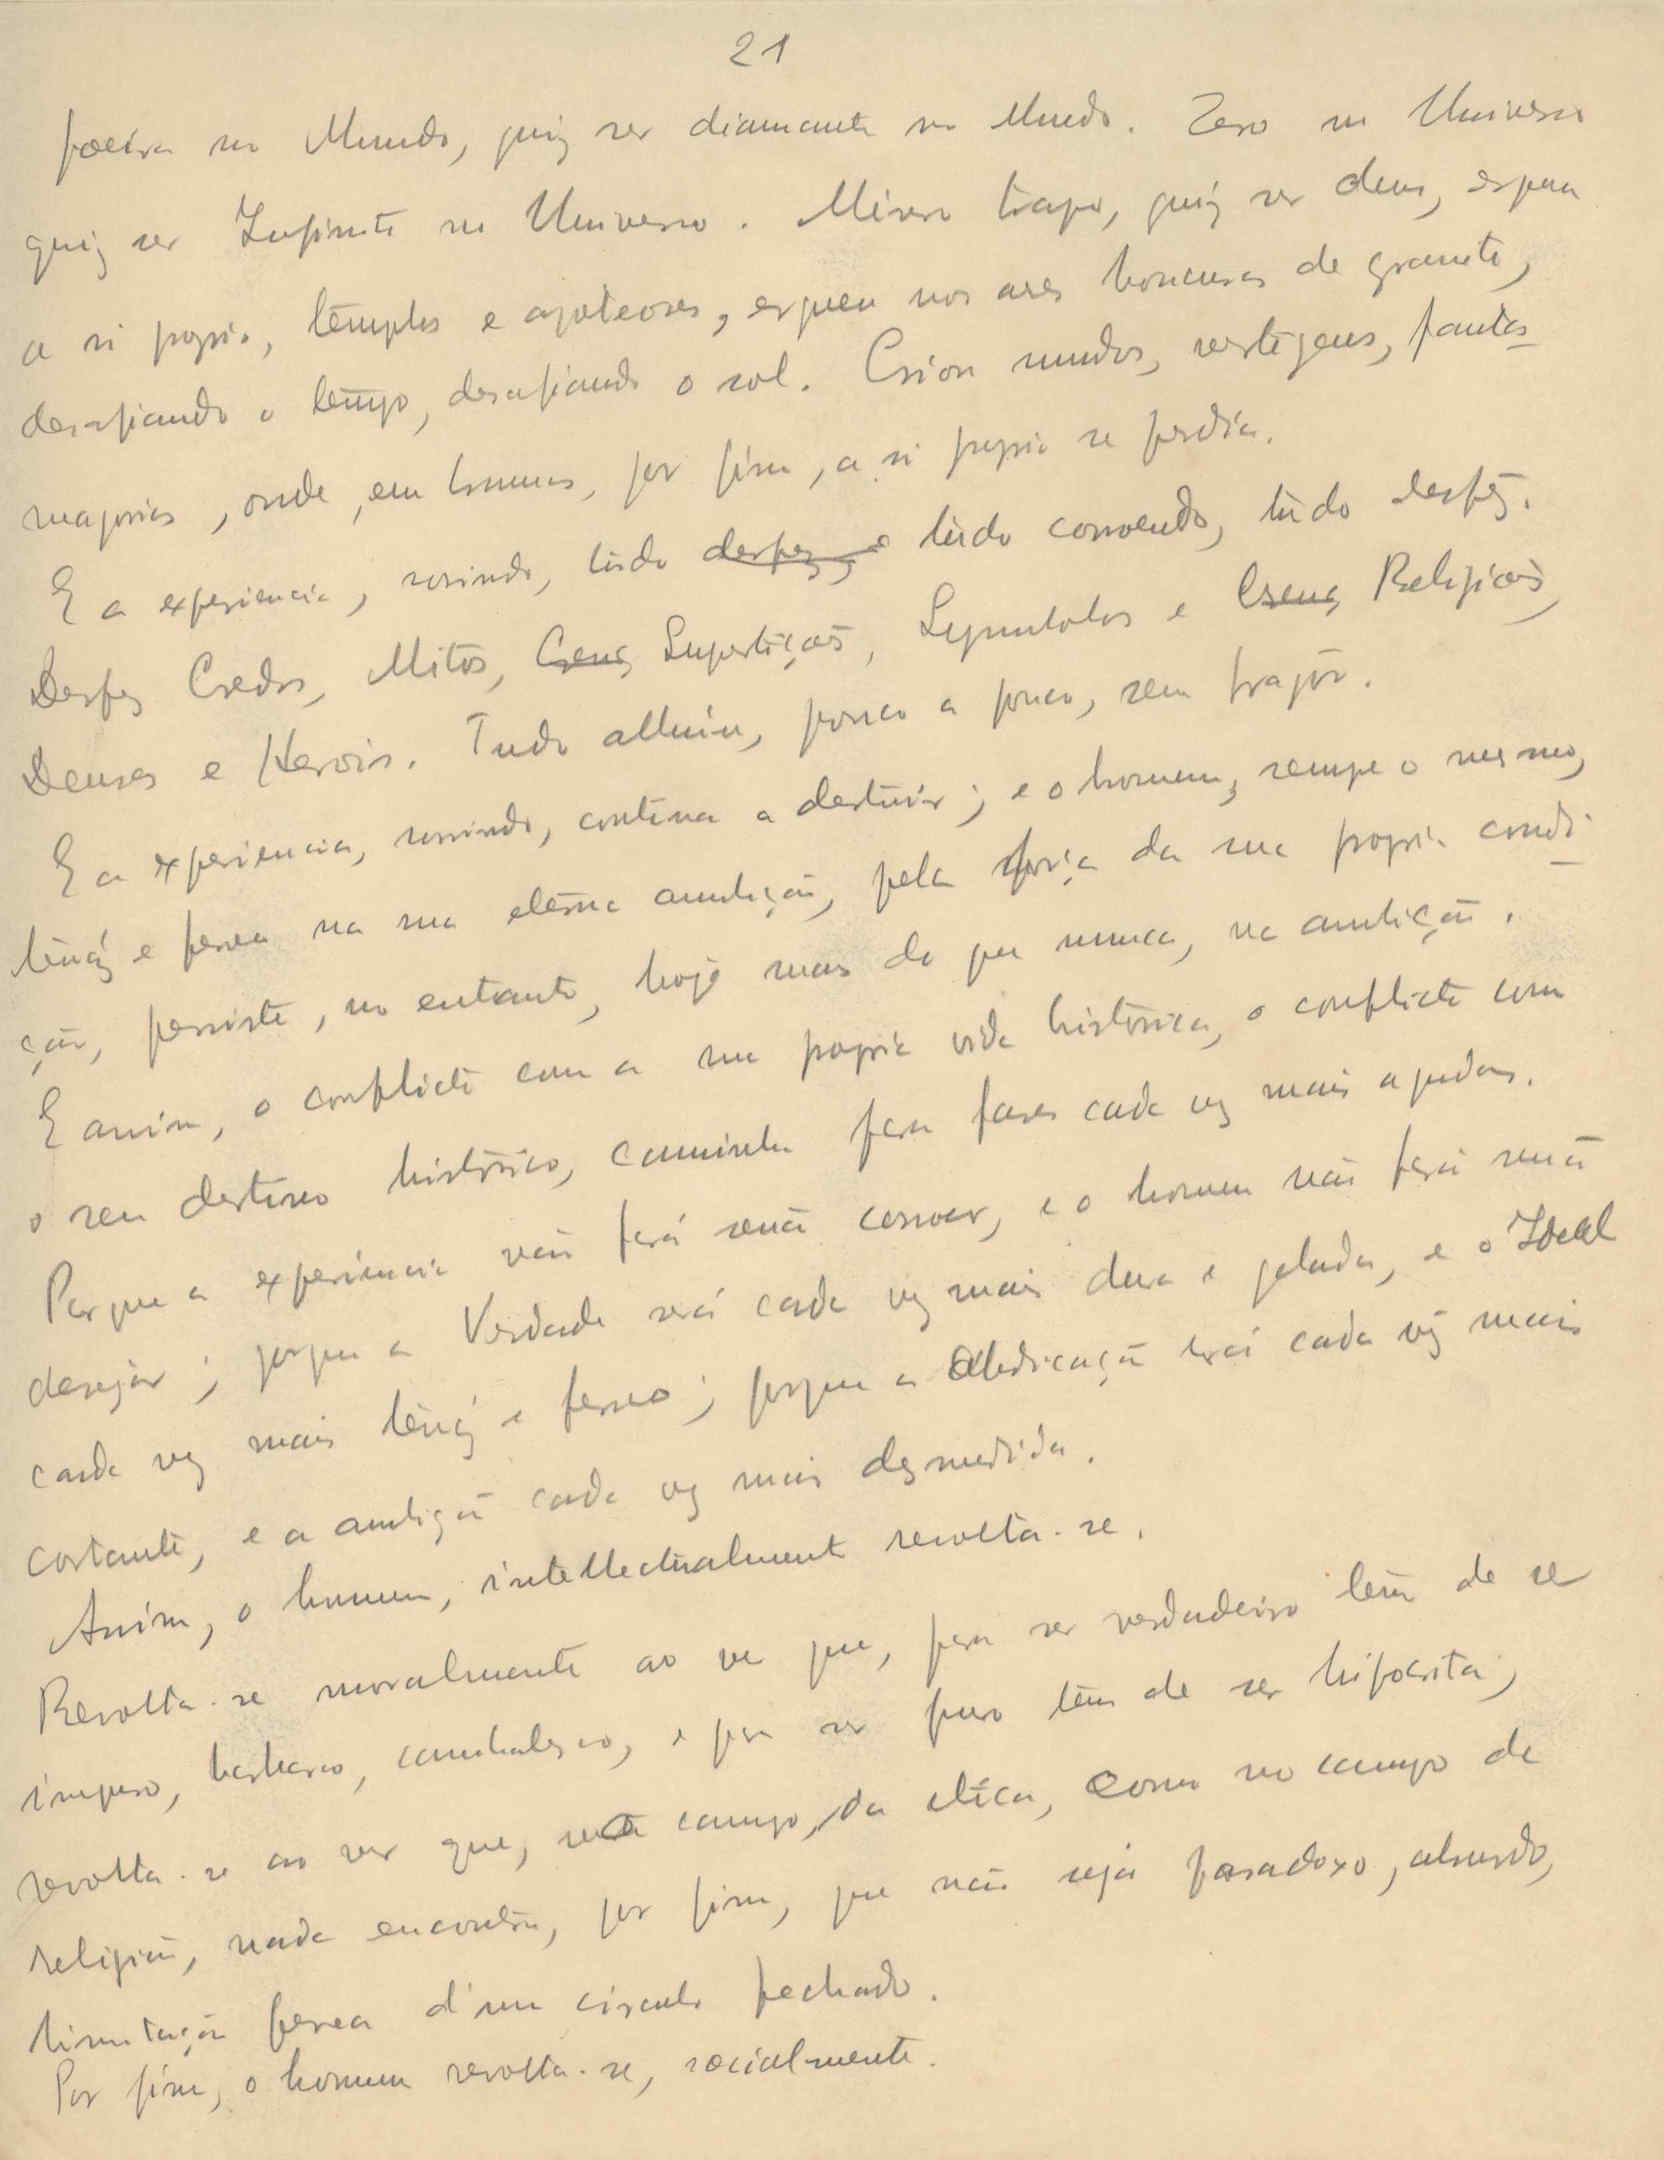 21
poeira no Mundo, quiz ser diamante no Mundo. Zero no Universo
quiz ser Infinito no Universo. Misero trapo, quiz ser deus, ergueu
a si proprio, templos e apoteoses, ergueu nos ares de granito,
desafiando o tempo, desafiando o sol. Criou mundos, vertigens, fantas
magorias, onde, em brumas, por fim, a si proprio se perdia.
E a experiencia, sorrindo, tudo desfez, e tudo corroendo, tudo desfez.
Desfez Credos, Mitos, Crenç Superstições, Symbolos e Crenç Religiões,
Deuses e Herois. Tudo alluiu, pouco a pouco, sem fragor.
E a experiencia, sorrindo, continua a destruir; e o homem, sempre o mesmo,
tenáz e ferrea na sua eterna ambição, pela força da sua propria condi
ção, persiste, no entanto, hoje mais do que nunca, na ambição.
E assim, o conflicto com a sua propria vida historica, o conflicto com
o seu destino historico, caminha para fases cada vez mais agudas.
Porque a experiencia não fará senão corroer, e o homem não fará senão
desejar; porque a Verdade será cada vez mais dura e gelada, e o Ideal
cada vez mais tenáz e ferreo; porque a Abdicação será cada vez mais
cortante, e a ambição cada vez mais desmedida.
Assim, o homem, intellectualmente revolta-se.
Revolta-se moralmente ao ver que, para ser verdadeiro tem de ser
impuro, barbaro, canibalesco, e para ser puro tem de ser hipocrita;
revolta-se ao ver que, no campo da etica, como no campo de
religião, nada encontra, por fim, que não seja paradoxo, absurdo,
limitação ferrea d'um circulo fechado.
Por fim, o homem revolta-se, socialmente.